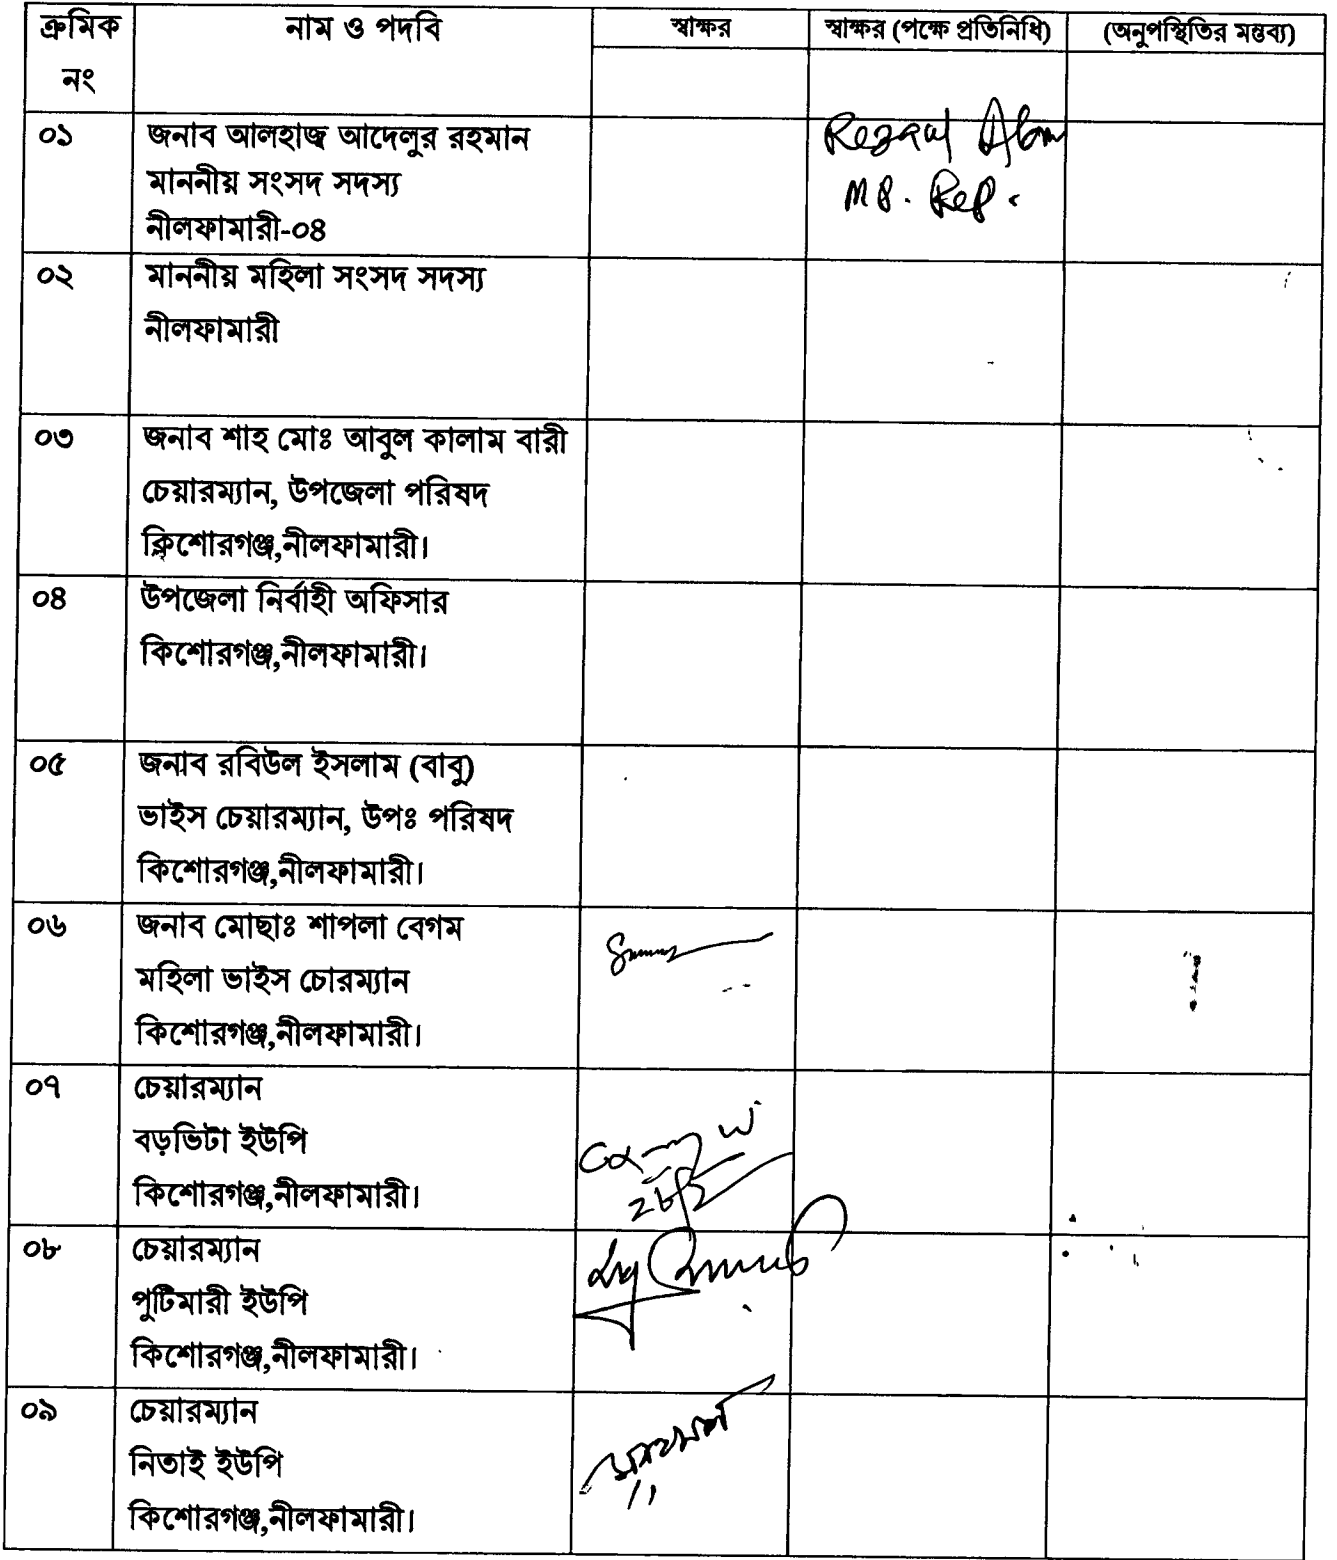 ক্রমিক নং
নাম ও পদবি
স্বাক্ষর
স্বাক্ষর (পক্ষে প্রতিনিধি)
(অনুপস্থিতির মন্তব্য)
০১
জনাব আলহাজ্ব আদেলুর রহমান
মাননীয় সংসদ সদস্য
নীলফামারী-০৪
Rezaul Alam
MP. Rep.
০২
মাননীয় মহিলা সংসদ সদস্য
নীলফামারী
০৩
জনাব শাহ মোঃ আবুল কালাম বারী
চেয়ারম্যান, উপজেলা পরিষদ
কিশোরগঞ্জ,নীলফামারী।
০৪
উপজেলা নির্বাহী অফিসার
কিশোরগঞ্জ,নীলফামারী।
০৫
জনাব রবিউল ইসলাম (বাবু)
ভাইস চেয়ারম্যান, উপঃ পরিষদ
কিশোরগঞ্জ,নীলফামারী।
০৬
জনাব মোছাঃ শাপলা বেগম
মহিলা ভাইস চোরম্যান
কিশোরগঞ্জ,নীলফামারী।
০৭
চেয়ারম্যান
বড়ভিটা ইউপি
কিশোরগঞ্জ,নীলফামারী।
০৮
চেয়ারম্যান
পুটিমারী ইউপি
কিশোরগঞ্জ,নীলফামারী।
০৯
চেয়ারম্যান
নিতাই ইউপি
কিশোরগঞ্জ,নীলফামারী।